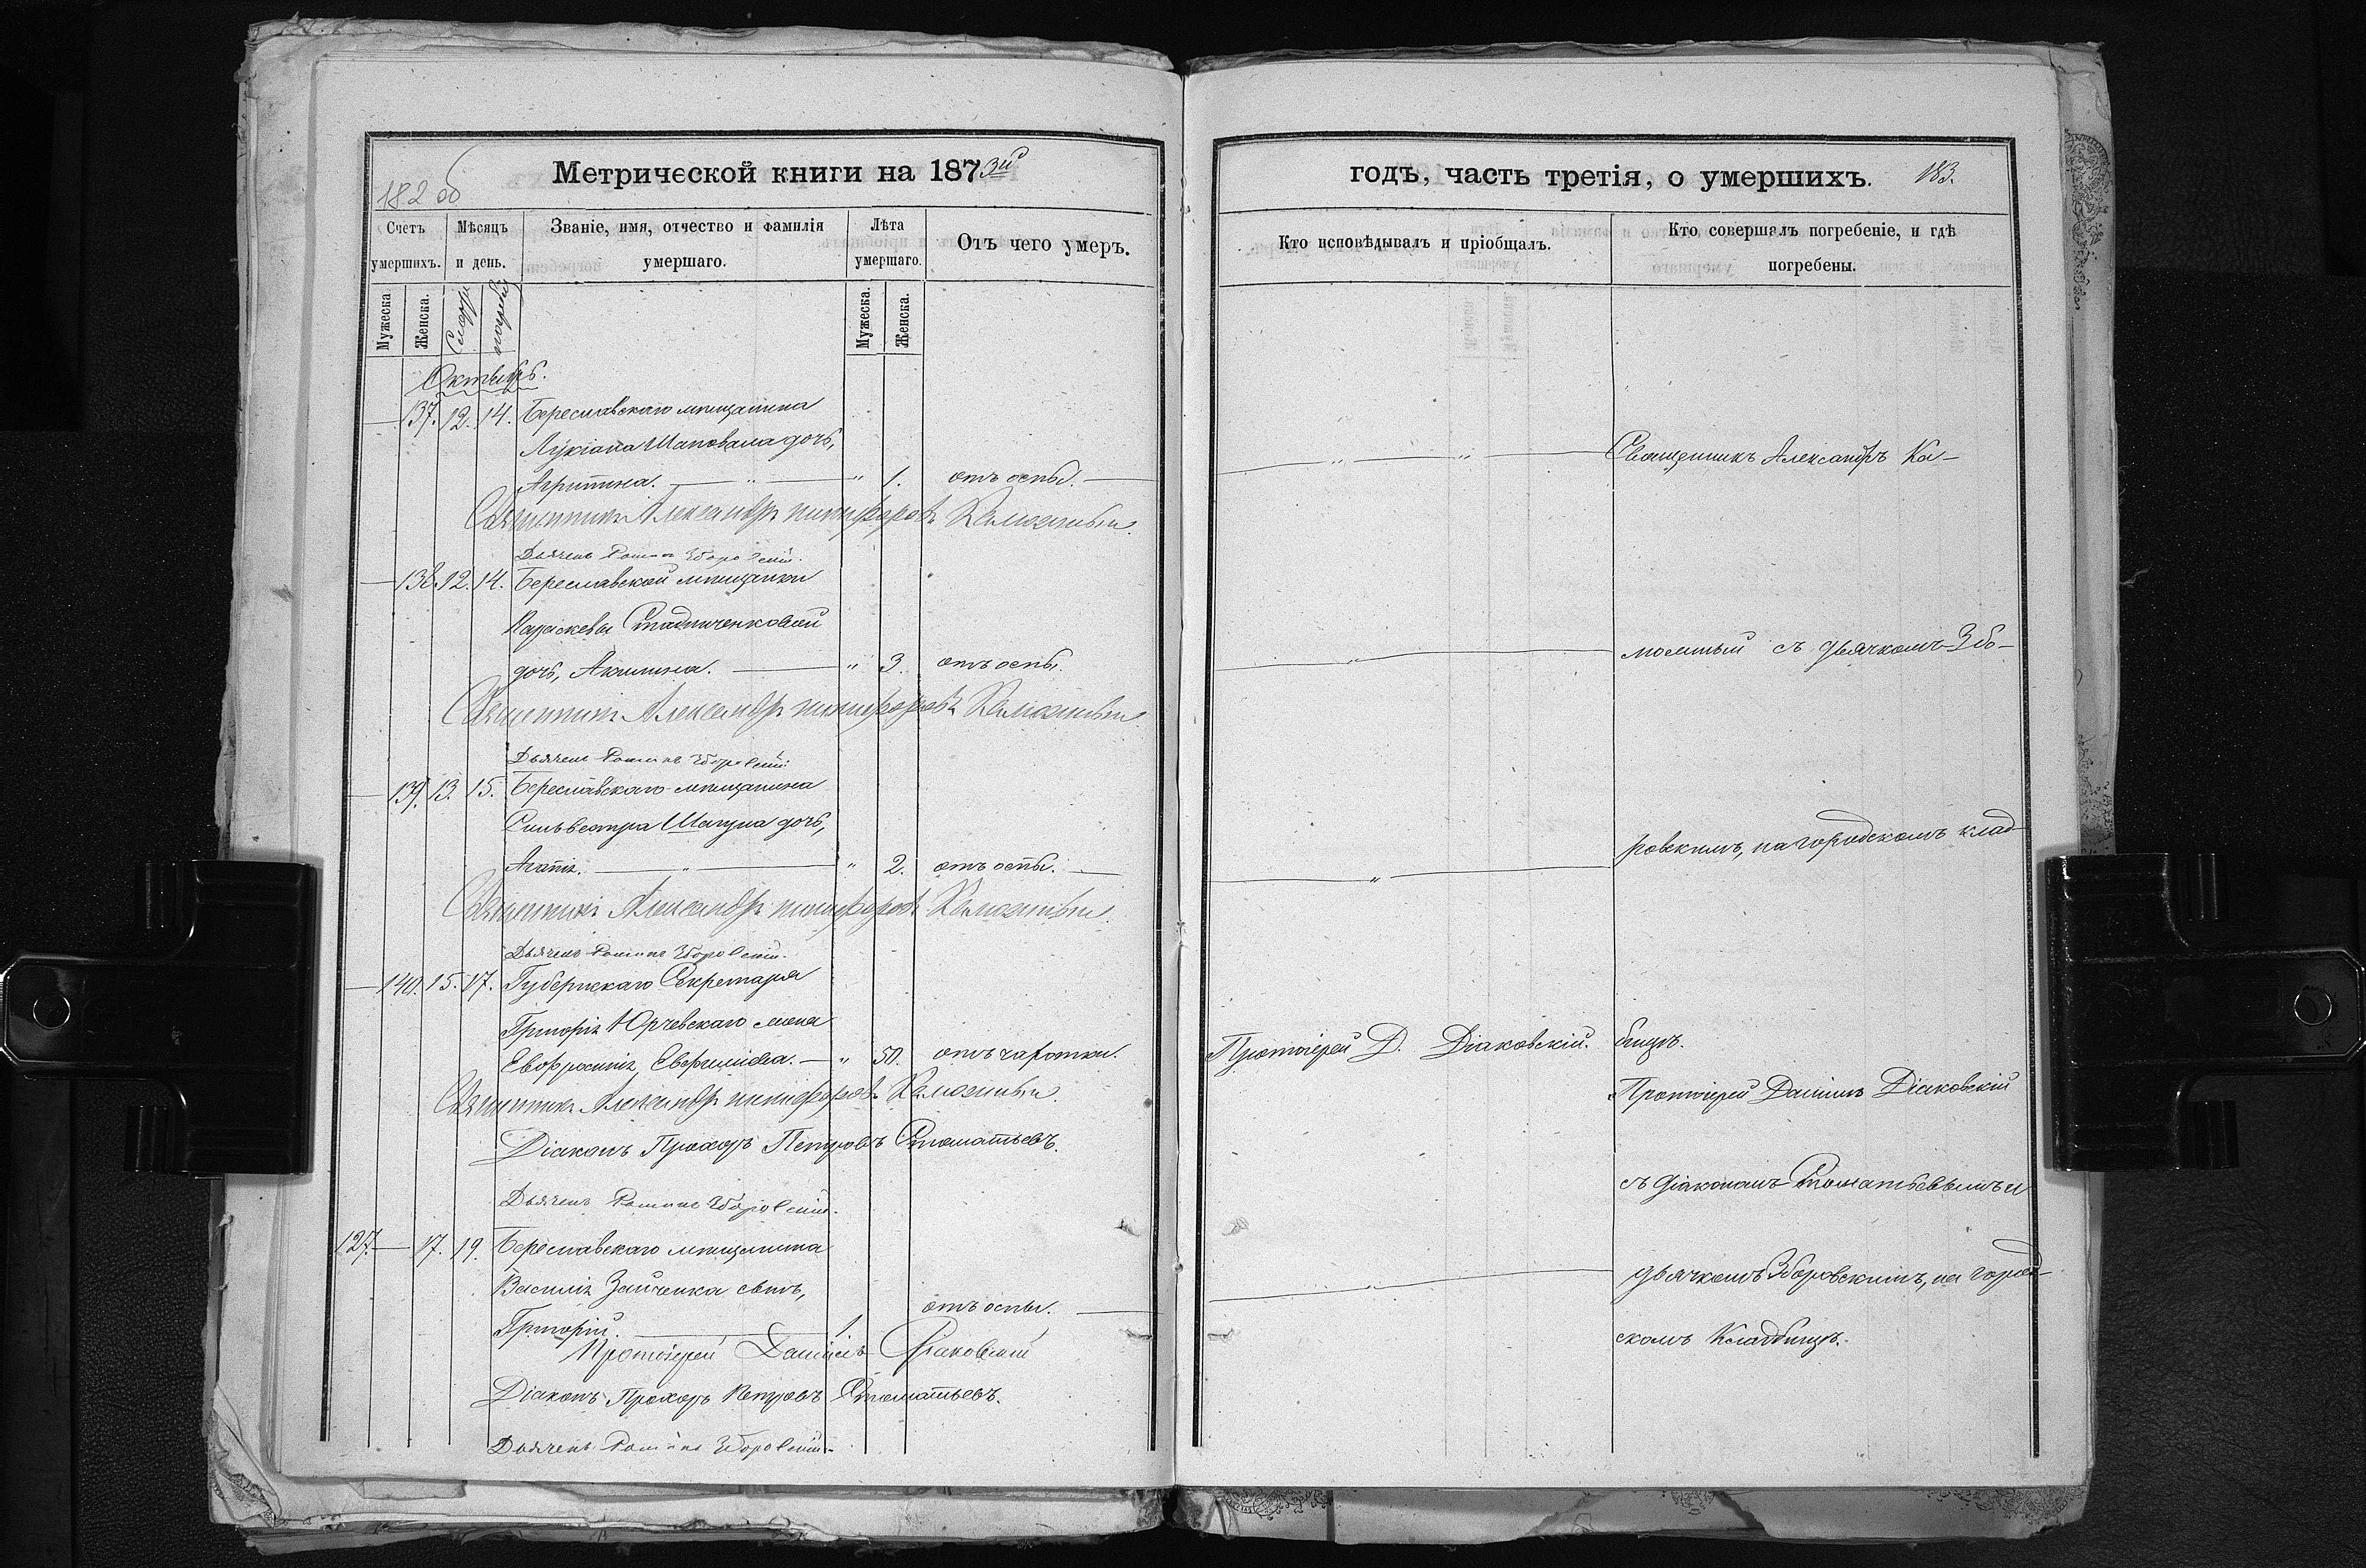 Метрической книги на 1873й
182 об
Счетъ умершихъ.
Мѣсяцъ и день.
Званіе, имя, отчество и фамилія умершаго.
Лѣта умершаго.
Отъ чего умеръ.
Мужеска
Женска.
Мужеска.
Женска.
Октябрь.
137. 12. 14. Береславскаго мѣщанина
Лукіана Шаповала дочь,
Агрипина. — „ — „ 1. отъ оспы. —
Священникъ Александръ Никифоровъ
Дьячекъ Романъ Зборовскій.
138. 12. 14. Береславской мѣщанки
Параскевы Стадниченковой
дочь, Акилина. — „ 3. отъ оспы.
Священникъ Александръ Никифоровъ
Дьячекъ Романъ Зборовскій
139. 13. 15. Береславскаго мѣщанина
Сильвестра дочь,
Агапія. — „ — „ 2. отъ оспы. —
Священникъ Александръ Никифоровъ
Дьячекъ Романъ Зборовскій.
140. 15. 17. Губернскаго Секретаря
Григорія Юрчевскаго жена
Евфросинія, — „ 50. отъ чахотки.
Священникъ Александръ Никифоровъ
Діаконъ Прохоръ Петровъ Стоматьевъ.
Дьячекъ Романъ Зборовскій.
127. — 17. 19. Береславскаго мѣщанина
Василія Зайченка сынъ,
отъ оспы. —
Григорій. — 1.
Протоіерей Даніилъ Діаковскій
Діаконъ Прохоръ Петровъ Стоматьевъ.
Дьячекъ Романъ Зборовскій
годъ, часть третія, о умершихъ. 183.
Кто исповѣдывалъ и пріобщалъ.
Кто совершалъ погребеніе, и гдѣ погребены.
Священникъ Александръ Ка-
съ дьячкомъ Збо-
ровскимъ, на городскомъ клад-
бищѣ.
Протоіерей Д. Діаковскій.
Протоіерей Даніилъ Діаковскій
съ діакономъ Стоматьевымъ и
дьячкомъ Зборовскимъ, на город-
скомъ Кладбищѣ.